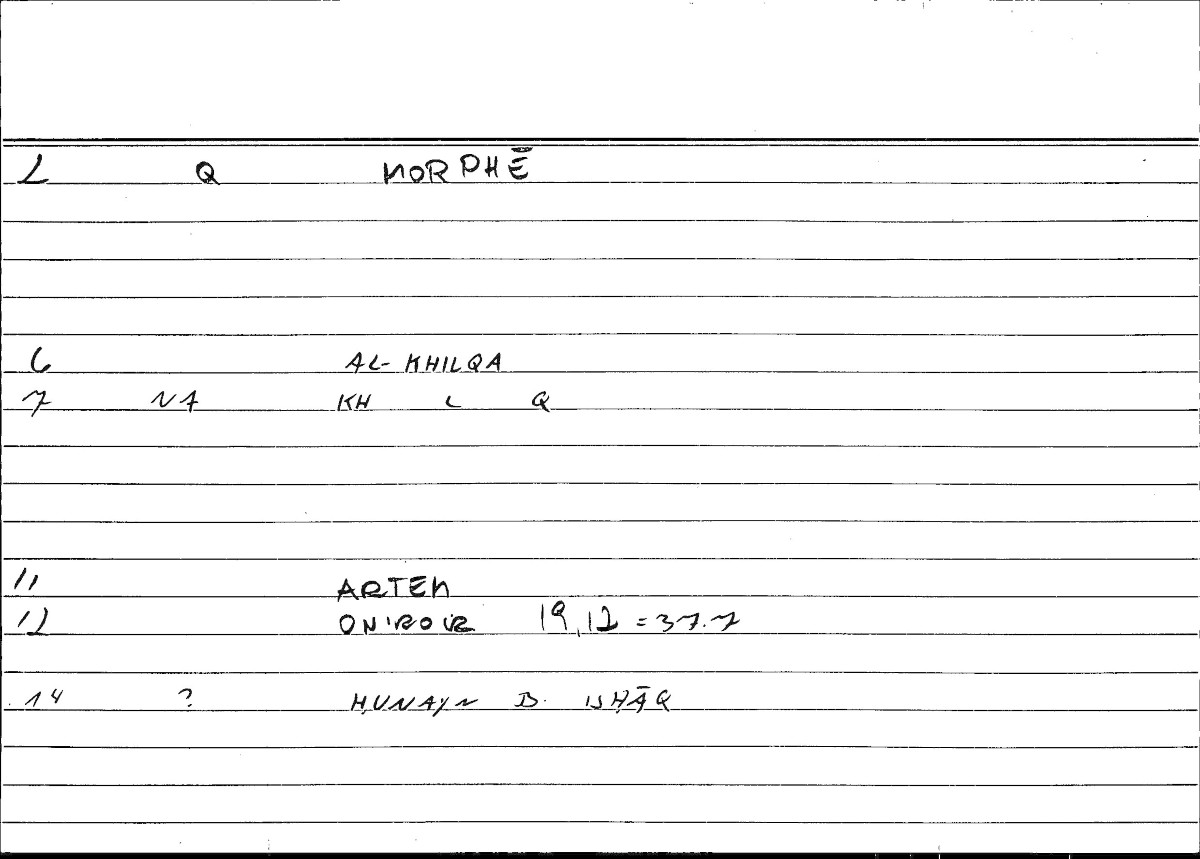 2 Q MORPHĒ
6 AL-KHILQA
7 NA KH L Q
11 ARTEM
12 ONIROCR 19,12 = 37.7
14 ? ḤUNAYN B. ISḤĀQ